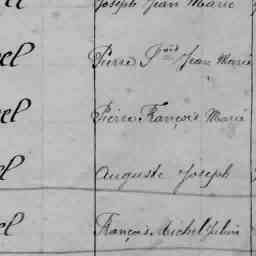 Joseph Jean Marie
el Pierre Fçois Jean Marie
el Pierre François Marie
el Auguste Joseph
el François Michel Julien